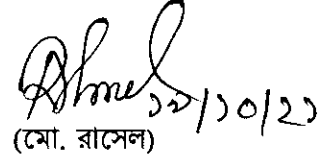 ১৯/১০/২১
(মো. রাসেল)